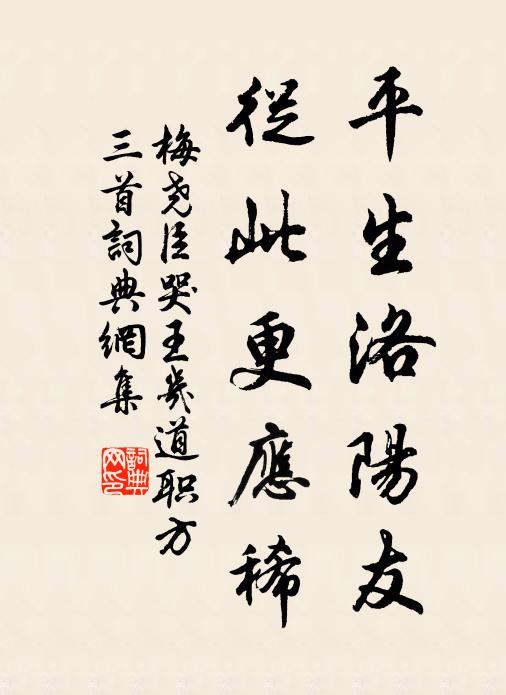 平生洛陽友
從此更應稀
梅尧臣哭王幾道职方
三首詞典網集
詞典网印